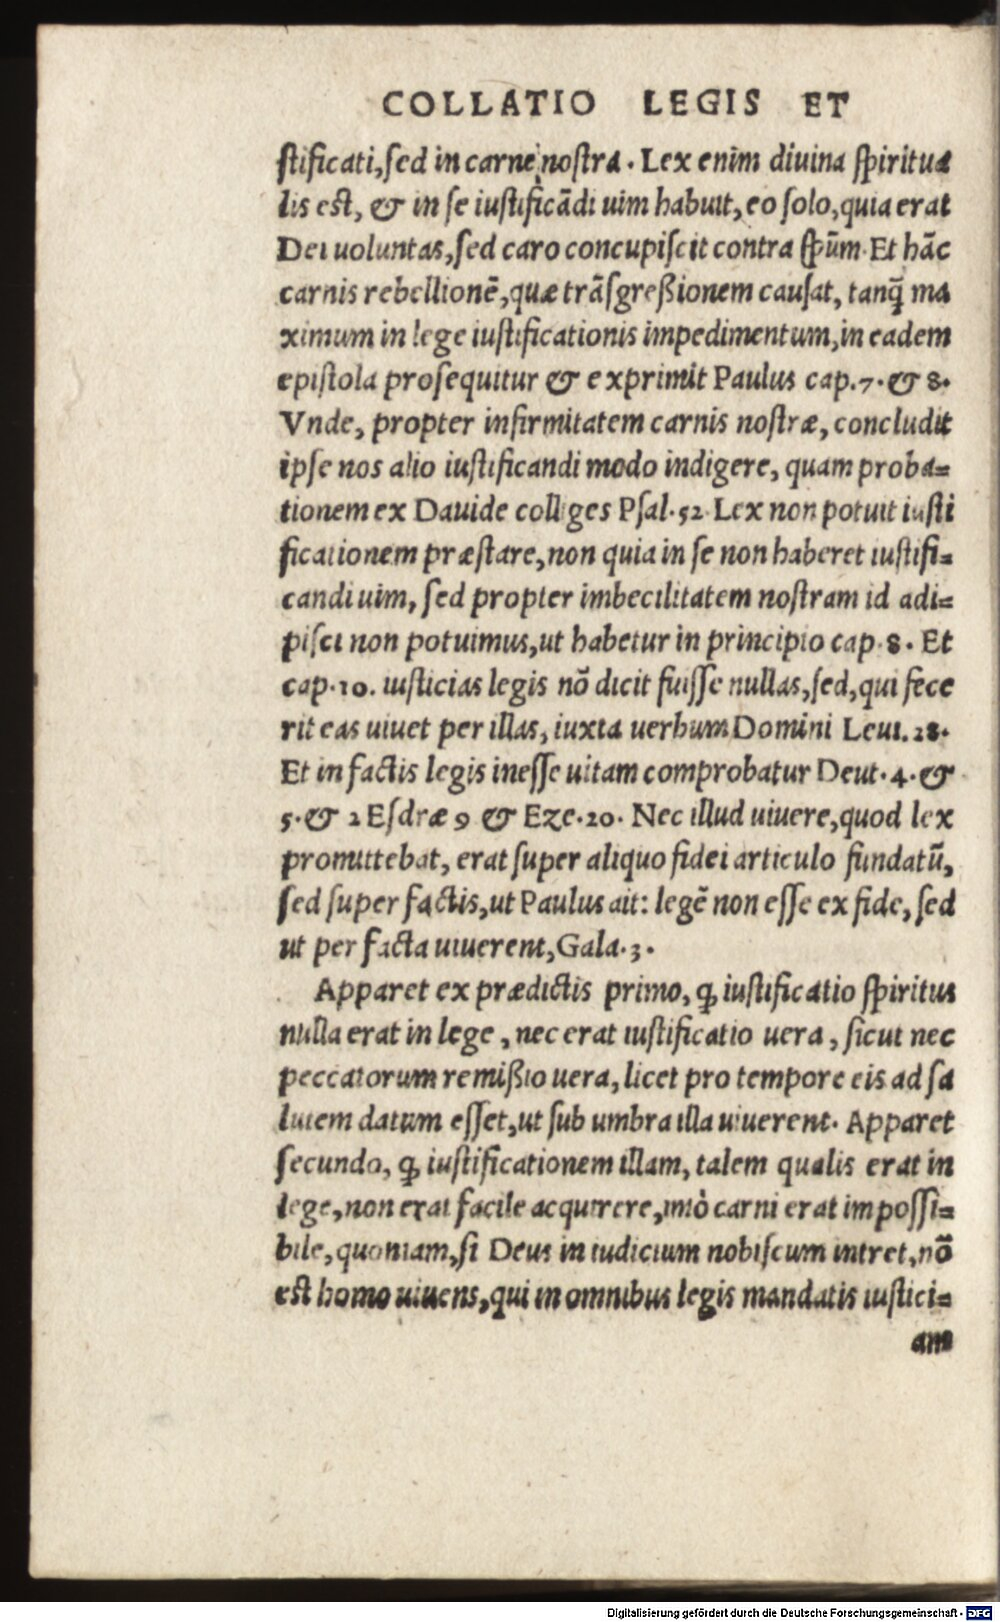 COLLATIO LEGIS ET
stificati, sed in carne nostra. Lex enim diuina spiritua
lis est, & in se iustificādi uim habuit, eo solo, quia erat
Dei uoluntas, sed caro concupiscit contra spūm. Et hāc
carnis rebellionē, quæ trāsgreßionem causat, tanq̄ ma
ximum in lege iustificationis impedimentum, in eadem
epistola prosequitur & exprimit Paulus cap. 7. & 8.
Vnde, propter infirmitatem carnis nostræ, concludit
ipse nos alio iustificandi modo indigere, quam proba=
tionem ex Dauide colliges Psal. 52. Lex non potuit iusti
ficationem præstare, non quia in se non haberet iustifi=
candi uim, sed propter imbecilitatem nostram id adi=
pisci non potuimus, ut habetur in principio cap. 8. Et
cap. 10. iusticias legis nō dicit fuisse nullas, sed, qui fece
rit eas uiuet per illas, iuxta uerbum Domini Leui. 18.
Et in factis legis inesse uitam comprobatur Deut. 4. &
5. & 2 Esdræ 9 & Eze. 20. Nec illud uiuere, quod lex
promittebat, erat super aliquo fidei articulo fundatū,
sed super factis, ut Paulus ait: legē non esse ex fide, sed
ut per facta uiuerent, Gala. 3.
Apparet ex prædictis primo, ꝙ iustificatio spiritus
nulla erat in lege, nec erat iustificatio uera, sicut nec
peccatorum remißio uera, licet pro tempore eis ad sa
lutem datum esset, ut sub umbra illa uiuerent. Apparet
secundo, ꝙ iustificationem illam, talem qualis erat in
lege, non erat facile acquirere, imò carni erat impossi=
bile, quoniam, si Deus in iudicium nobiscum intret, nō
est homo uiuens, qui in omnibus legis mandatis iustici=
am
Digitalisierung gefördert durch die Deutsche Forschungsgemeinschaft - DFG